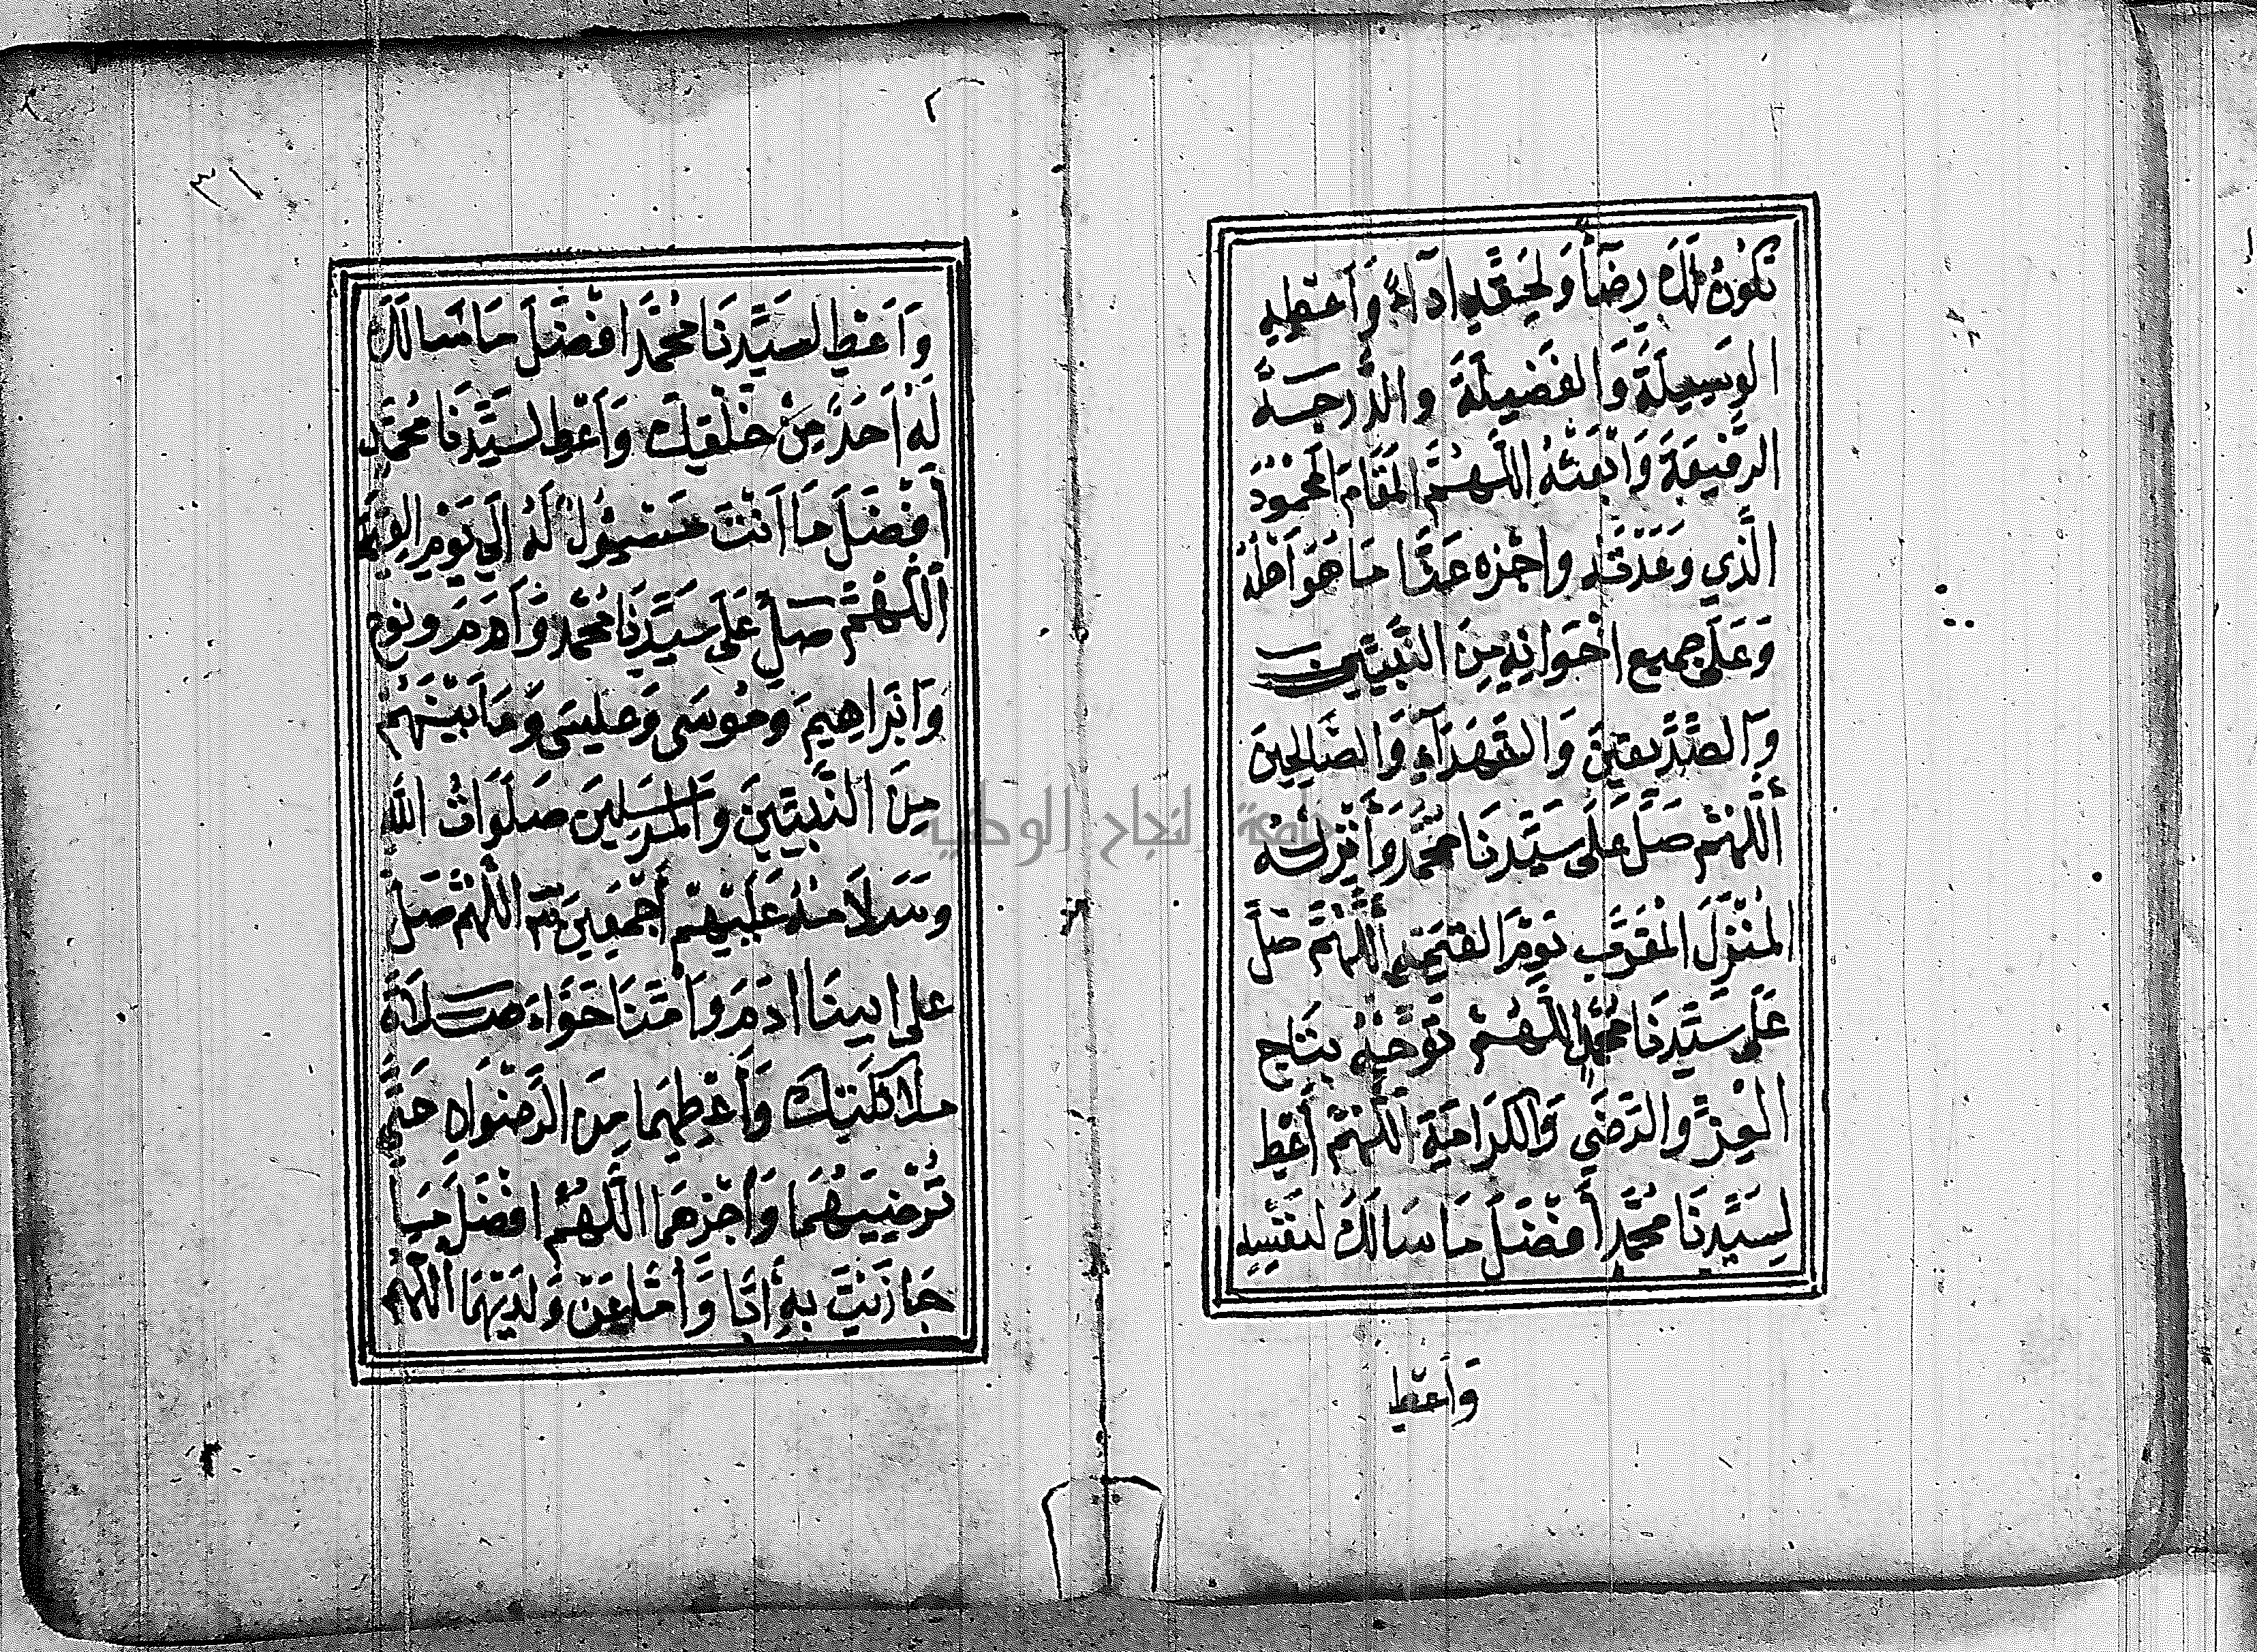 تَكُونُ لَكَ رِضَآءً وَلِحَقِّهِ ادَآءً وَاَعْطِهِ
الوَسِيلَةَ وَالفَضِيلَةَ وَالدَّرَجَةَ
الرَّفِيعَةَ وَابْعَثْهُ اللَّهُمَّ المَقَامَ المَحْمُودَ
الَّذِي وَعَدْتَهُ واجْزِهِ عَنَّا مَا هُوَ اَهْلُهُ
وَعَلَى جميع اخْوَانِهِ مِنَ النَّبِيِّينَ
وَالصِّدِّيقِينَ وَالشُّهَدَآءِ وَالصَّالِحِينَ
أَللَّهُمَّ صَلِّ عَلَى سَيِّدِنَا مُحَمَّدٍ وَأَنْزِلْهُ
المُنْزَلَ المُقَرَّبَ يَوْمَ القِيمَةِ أَللَّهُمَّ صَلِّ
عَلَى سَيِّدِنَا مُحَمَّدٍ اللَّهُمَّ تَوِّجْهُ بِتَاجِ
العِزِّ وَالرِّضَى وَالكَرَامَةِ اَللَّهُمَّ أَعْطِ
لِسَيِّدِنَا مُحَمَّدٍ أَفْضَلَ مَا سَالَكَ لِنَفْسِهِ
وَاَعْطِ
٣١
وَاَعْطِ لِسَيِّدِنَا مُحَمَّدٍ اَفْضَلَ مَا سَالَكَ
لَهُ اَحَدٌ مِنْ خَلْقِكَ وَاَعْطِ لِسَيِّدِنَا مُحَمَّدٍ
أَفْضَلَ مَا اَنْتَ مَسْئُولٌ لَهُ اِلَى يَوْمِ القِيمَةِ
أَللَّهُمَّ صَلِّ عَلَى سَيِّدِنَا مُحَمَّدٍ وَاَدَمَ وَنُوحٍ
وَابْرَاهِيمَ وَمُوسَى وَعِيسَى وَمَا بَيْنَهُمْ
مِنَ النَّبِيِّينَ وَالمُرْسَلِينَ صَلَوَاتُ اللَّهِ
وَسَلَامُهُ عَلَيْهِمْ أَجْمَعِينَ اللَّهُمَّ صَلِّ
عَلَى ابِينَا ادَمَ وَاُمِّنَا حَوَّاءَ صَلَاةَ
مَلَائِكَتِكَ وَأَعْطِهِمَا مِنَ الرِّضْوَانِ حَتَّى
تُرْضِيَهُمَا وَأَجْزِهِمَا اللَّهُمَّ افْضَلَ مَا
جَازَيْتَ بِهِ اَبًا وَاُمًّا عَنْ وَلَدَيْهِمَا أَللَّهُمَّ
جامعة النجاح الوطنية